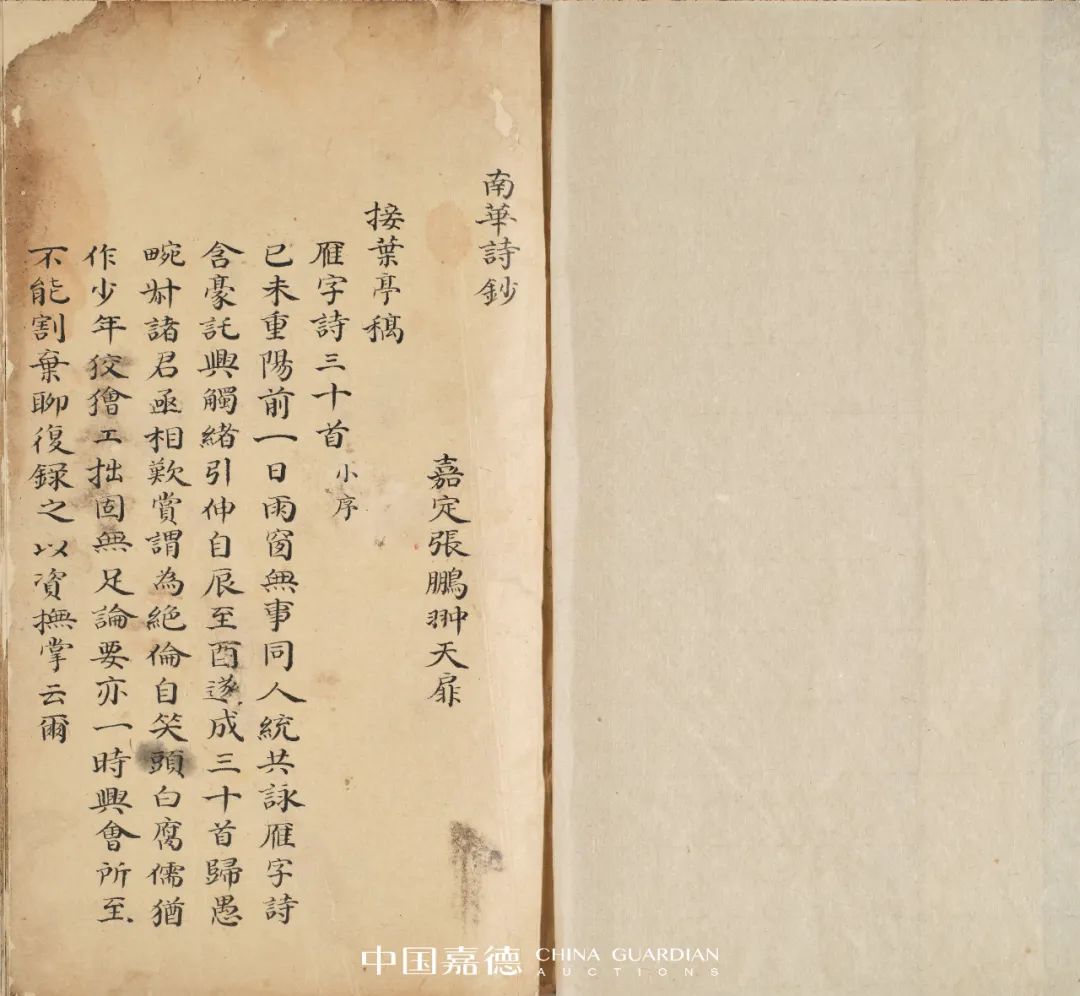 南華詩鈔
嘉定張鵬翀天扉
接葉亭稿
雁字詩三十首小序
己未重陽前一日雨窗無事同人統共詠雁字詩
含豪託興觸緒引伸自辰至酉遂成三十首歸愚
畹叔諸君亟相歎賞謂為絕倫自笑頭白腐儒猶
作少年狡獪工拙固無足論要亦一時興會所至
不能割棄聊復錄之以資撫掌云爾
中国嘉德 CHINA GUARDIAN AUCTIONS